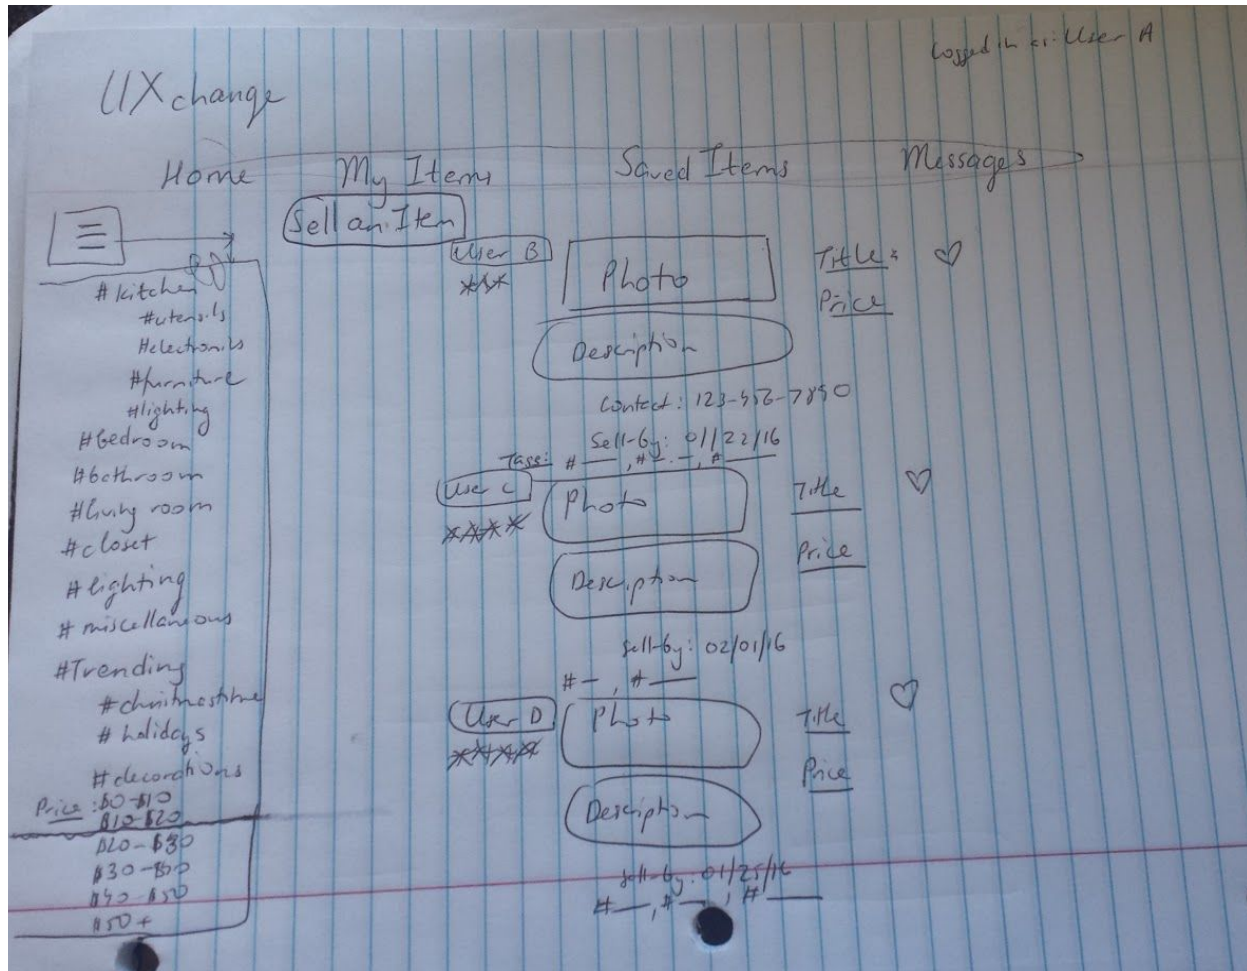 Logged in as: User A
UXchange
Home My Items Saved Items Messages
Sell an Item
#kitchen
#utensils
#electronics
#furniture
#lighting
#bedroom
#bathroom
#living room
#closet
#lighting
#miscellaneous
#Trending
#christmastime
#holidays
#decorations
Price: $0-$10
$10-$20
$20-$30
$40-$50
$50+
User B Photo Title:
Price
Description
Contact: 123-456-7890
Sell-by: 01/22/16
Tags: # , # , #
User C Photo Title
Price
Description
Sell-by: 02/01/16
# , #
User D Photo Title
Price
Description
Sell-by: 01/25/16
# , # , #